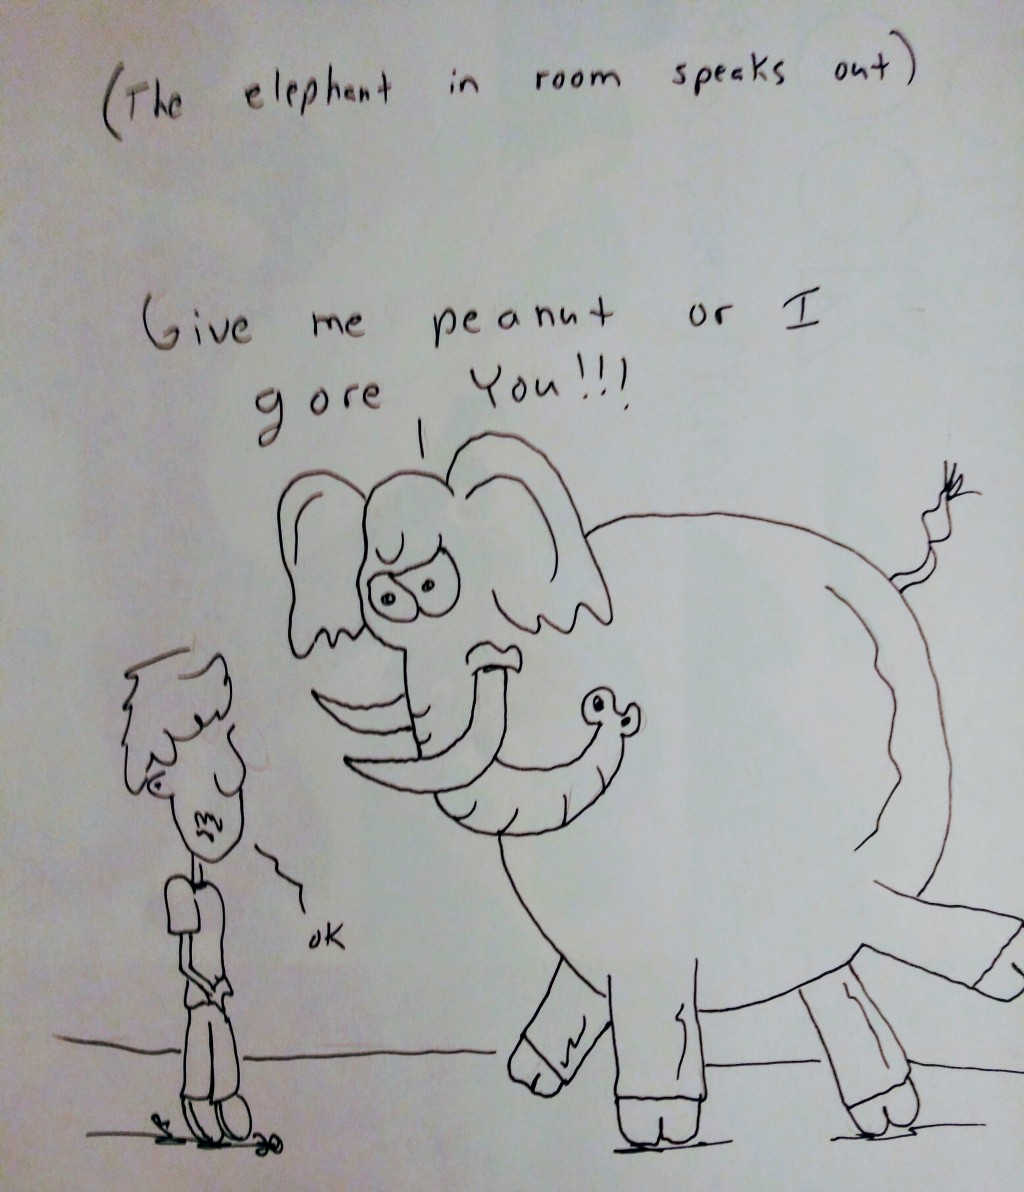 (The elephant in room speaks out)
Give me peanut or I
gore You!!!
OK